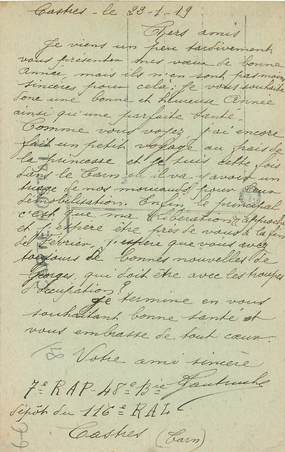 Castres - le 23-1-19
Chers amis
Je viens un peu tardivement
vous presenter mes vœux de bonne
année, mais ils n'en sont pas moins
sincères pour cela; Je vous souhaite
donc une bonne et heureuse année
ainsi qu'une parfaite santé.
Comme vous voyez j'ai encore
fait un petit voyage au frais de
la princesse et je suis cette fois
dans le Tarn, il va y avoir un
de nos pour
démobilisation. Enfin le principal
c'est que ma libération approche
et j'espère être près de vous à la fin
de Février, J'espère que vous avez
toujours de bonnes nouvelles de
Georges, qui doit être avec les troupes
d'occupation?
Je termine en vous
souhaitant bonne santé et
vous embrasse de tout cœur.
Votre ami sincère
7e RAP - 48e Bie
dépôt du 116e RAL
Castres (Tarn)